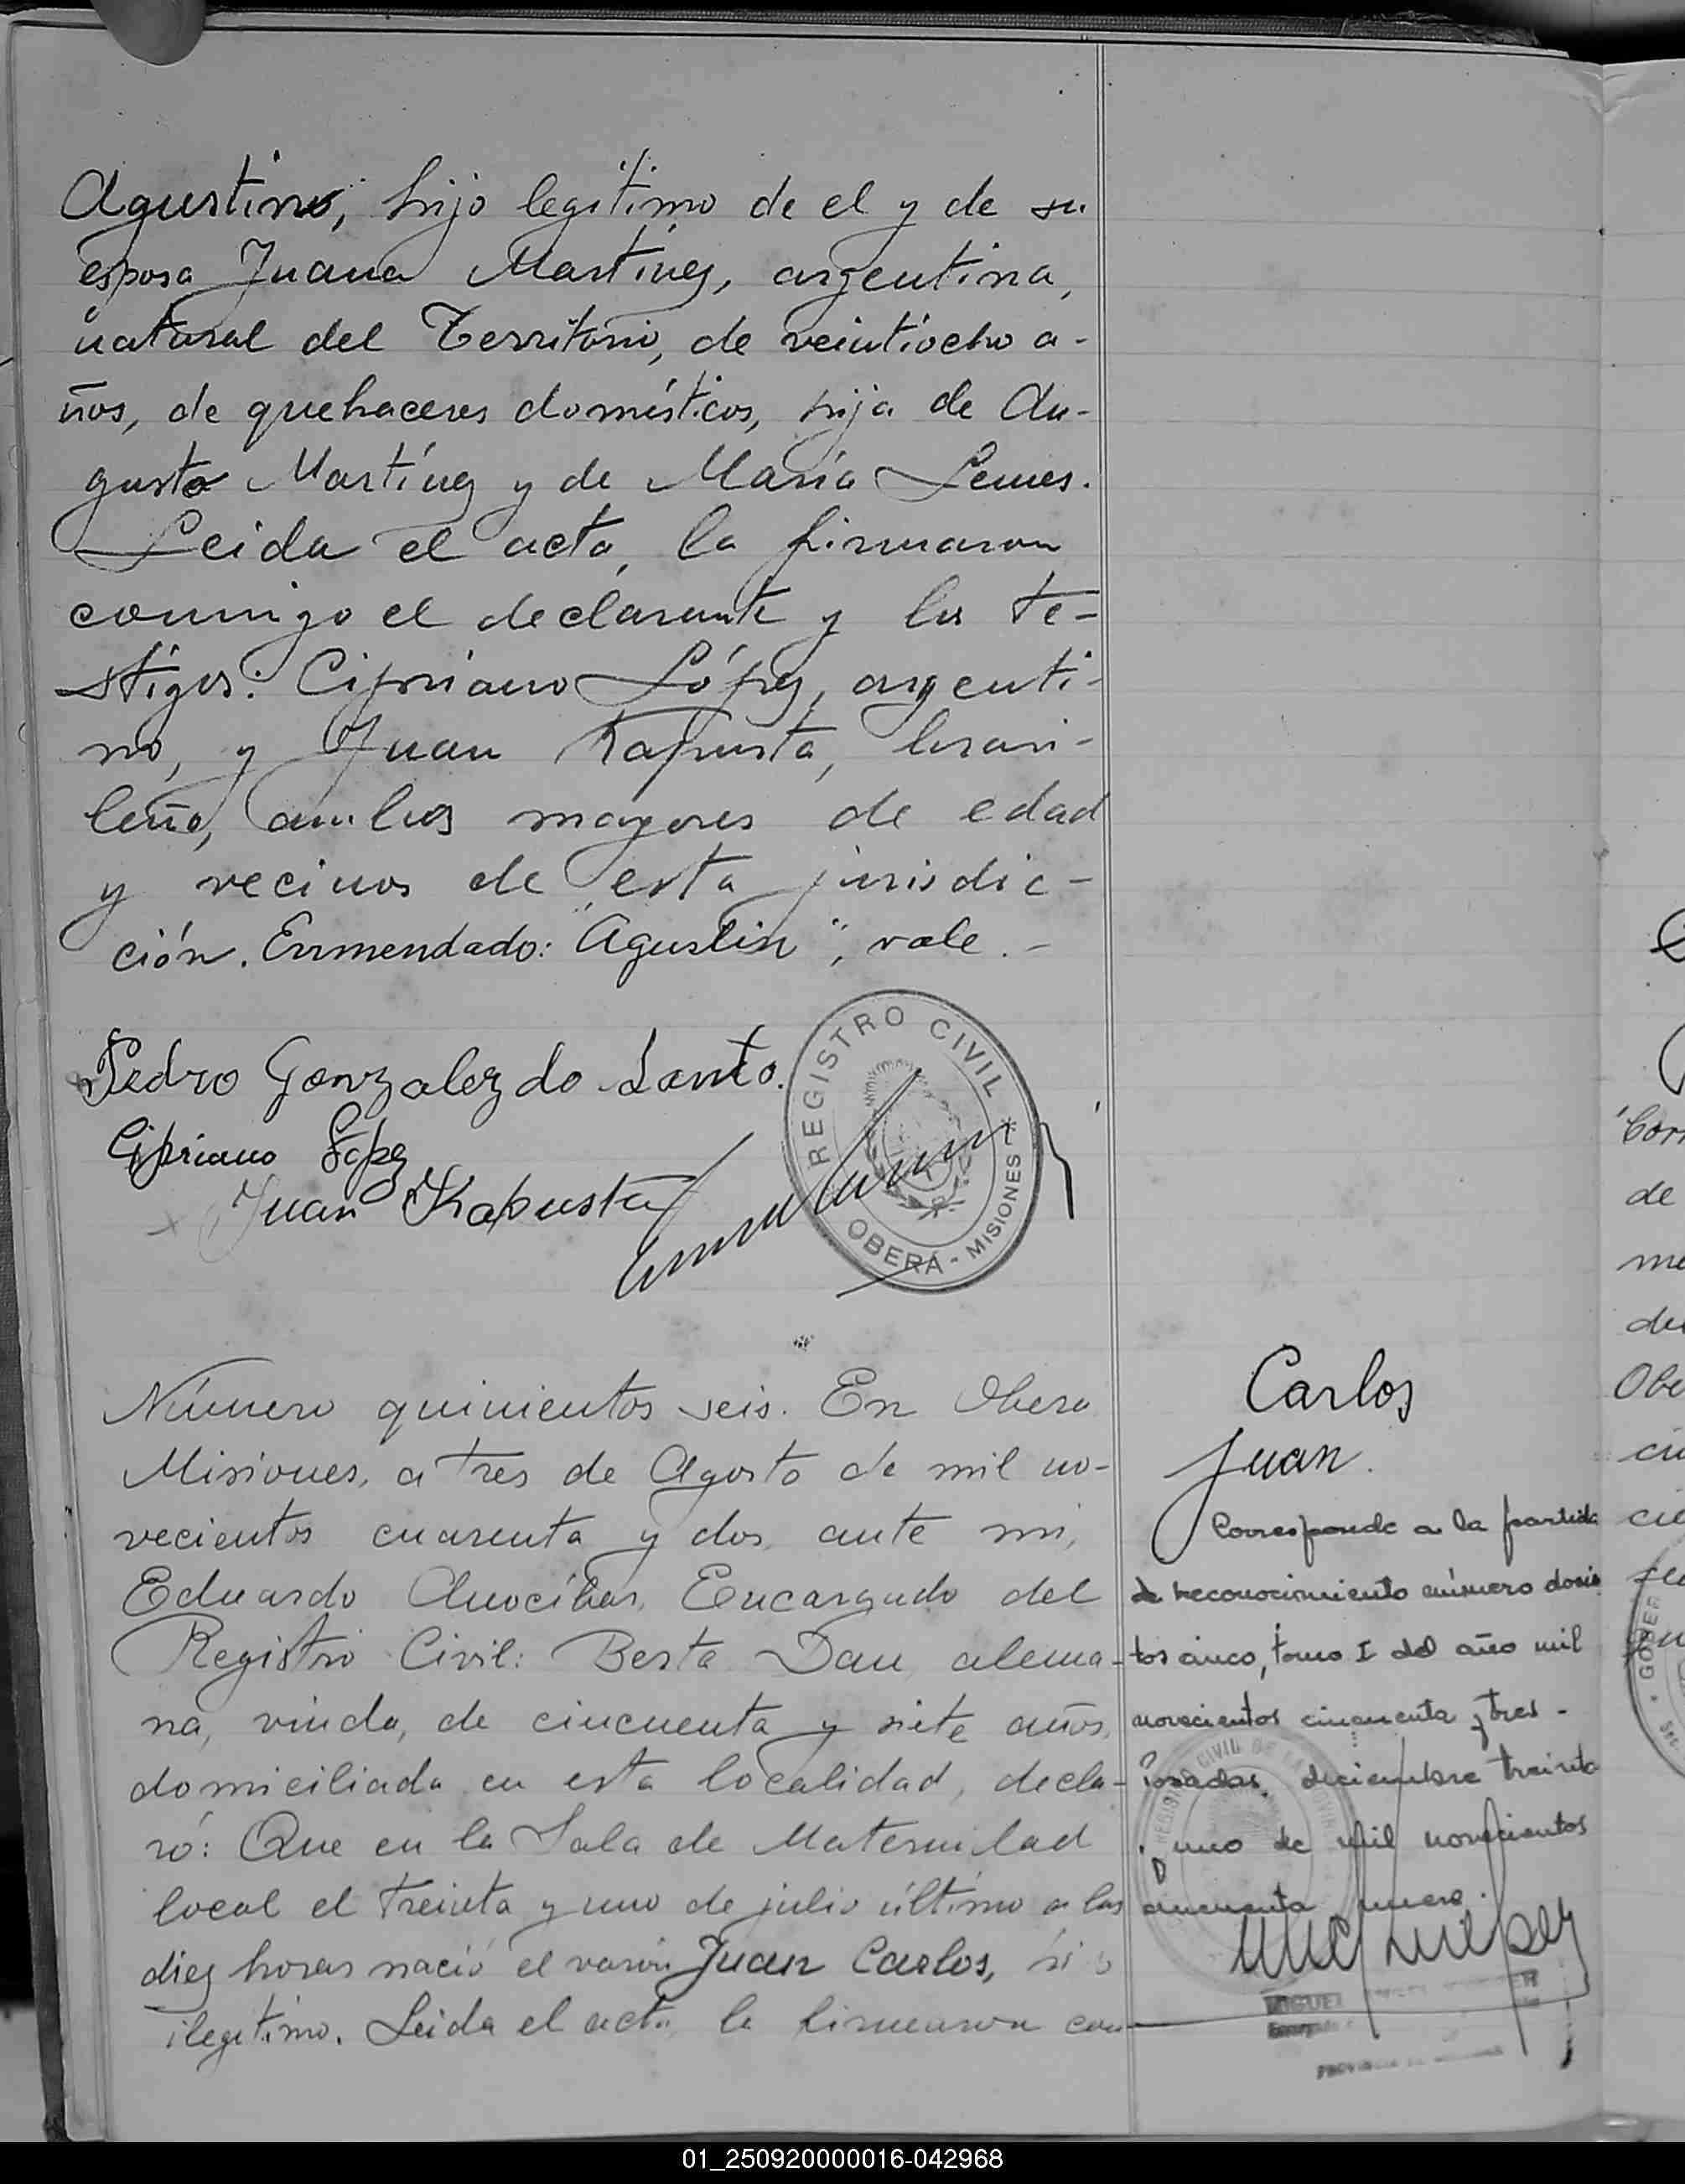 Agustin, hijo legítimo de el y de su
esposa Juana Martínez, argentina,
natural del Territorio, de veintiocho a-
ños, de quehaceres domésticos, hija de Au-
gusto Martínez y de María Lemes.
Leida el acta, la firmaron
conmigo el declarante y los te-
stigos: Cipriano López, argenti-
no, y Juan Kapusta, brasi-
leño, ambos mayores de edad
y vecinos de esta jurisdic-
ción. Enmendado: "Agustin", vale.-
Pedro Gonzalez do Santo.
Cipriano López
Juan Kapusta
REGISTRO CIVIL
OBERÁ - MISIONES
Número quinientos seis. En Obera
Misiones, a tres de Agosto de mil no-
vecientos cuarenta y dos, ante mi,
Eduardo Encargado del
Registro Civil: Berta Dau, alema-
na, viuda, de cincuenta y siete años,
domiciliada en esta localidad, decla-
ró: Que en la Sala de Maternidad
local el treinta y uno de julio último a las
diez horas nació el varón Juan Carlos, hijo
ilegítimo. Leida el acta, la firmaron con-
Carlos
Juan.
Corresponde a la partida
de reconocimiento número dosien
tos cinco, tomo I del año mil
novecientos cincuenta y tres -
Posadas, diciembre treinta
y uno de mil novecientos
cincuenta y nueve.
REGISTRO CIVIL DE LA
MIGUEL
PROVINCIA DE MISIONES
Corr
de
me
de
Obe
cu
cie
GOBER
01_250920000016-042968